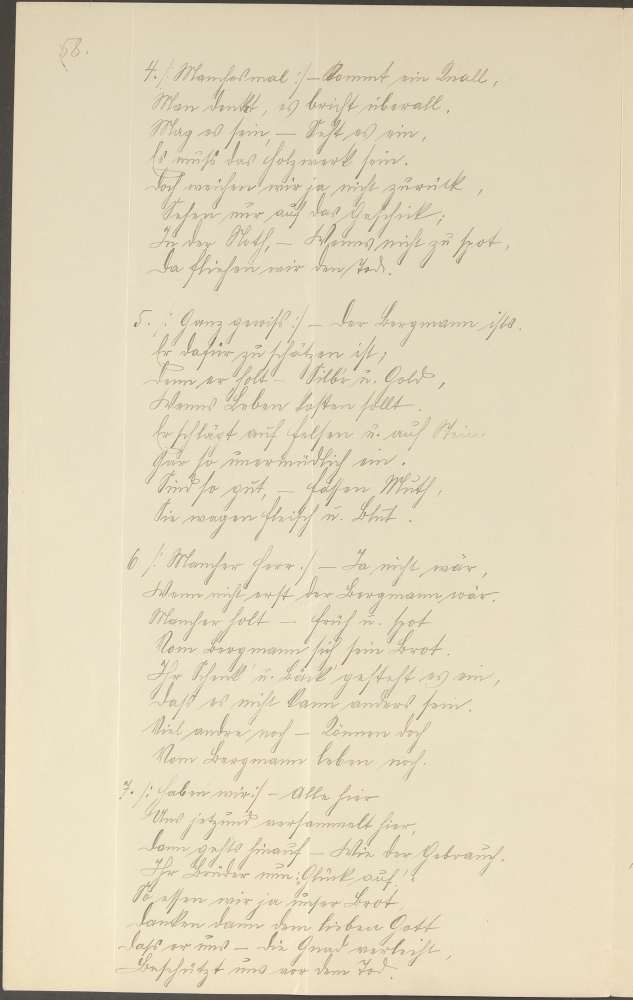 58.
4. /: Manchesmal :/ – Kommt ein Knall,
Man denkt, es bricht überall,
Mag es sein, – Seht es ein,
Es muß das Holzwerk sein.
Doch weichen wir ja nicht zurück,
Sehen nur auf das Geschick;
In der Noth, – Wenns nicht zu spot,
Da fliehen wir den Tod.
5. /: Ganz gewiß :/ – Der Bergmann ists.
Er dafür zu schätzen ist;
Denn er holt – Silbr u. Gold,
Wenns Leben kosten sollt.
Er schlägt auf Felsen u. auf Stein
Gar so unermüdlich ein.
Sind so gut, – fassen Muth,
Sie wagen Fleisch u. Blut.
6 /: Mancher Herr :/ – Ja nicht wär,
Wenn nicht erst der Bergmann wär.
Mancher holt – früh u. spot
Vom Bergmann sich sein Brot.
Ihr Schenk' u. Bäck' gesteht es ein,
Daß es nicht kann anders sein.
Viel andre noch – Können doch
Vom Bergmann leben noch.
7. /: Haben wir :/ – Alle hier
Uns jetzund versammelt hier,
Dann gehts hinauf – Wie der Gebrauch.
Ihr Brüder nun: Glück auf!
So essen wir ja unser Brot,
Danken dann dem lieben Gott
Daß er uns – die Gnad verleiht,
Beschützt uns vor dem Tod.